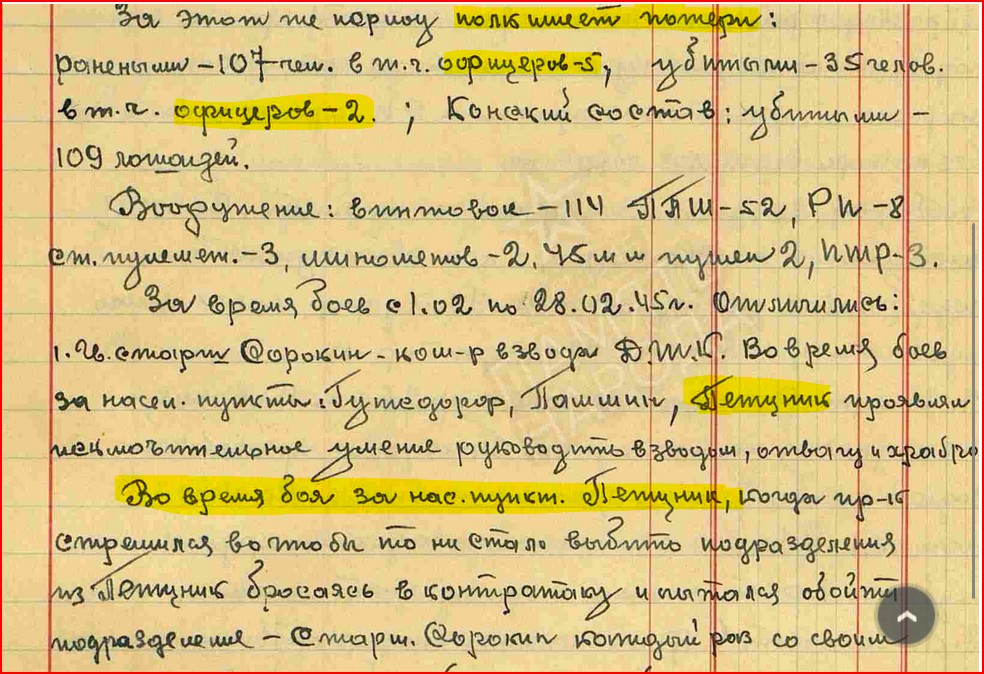 За этот же период полк имеет потери:
ранеными – 107 чел. в т.ч. офицеров-5, убитыми – 35 челов.
в т.ч. офицеров – 2. ; Конский состав: убитыми –
109 лошадей.
Вооружение: винтовок – 114 ППШ – 52, РП – 8
ст. пулемет. – 3, минометов – 2, 45 мм пушек 2, ПТР – 3.
За время боев с 1.02 по 28.02.45г. Отличились:
1. Гв. старш Сорокин – ком-р взвода Во время боев
за насел. пункты: Гутсдорф, Пашшин, Петцник проявлял
исключительное умение руководить взводом, отвагу и храбро
Во время боя за нас. пункт. Петцник, когда пр-к
стремился во чтобы то ни стало выбить подразделения
из Петцник бросаясь в контратаку и пытался обойти
подразделение – Старш. Сорокин каждый раз со своим
ПАМЯТЬ
НАРОДА